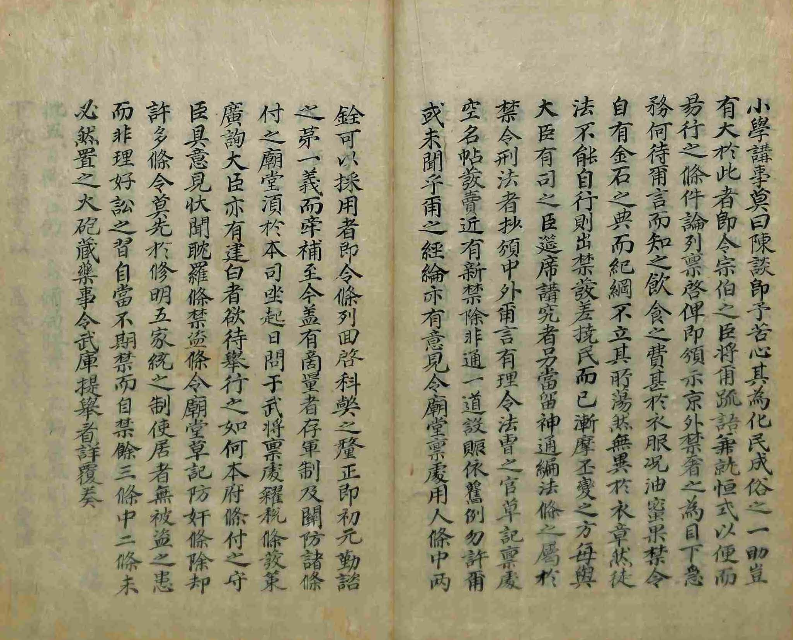 小學講事奠曰陳談即予苦心其為化民成俗之一助豈
有大於此者即令宗伯之臣將爾䟽語兼就恒式以便而
易行之條件論列稟啓俾即頒示京外禁奢之為目下急
務何待爾言而知之飮食之費甚於衣服况油蜜果禁令
自有金石之典而紀綱不立其眄蕩然無異於衣章然徒
法不能自行則出禁設差撓民而已漸摩丕變之方毋與
大臣有司之臣筵席講究者另當留神通編法條之屬於
禁令刑法者抄頒中外甭言有理令法曺之官草記稟處
空名帖發賣近有新禁除非通一道設賑依舊例勿許爾
或未聞乎爾之經綸亦有意見令廟堂稟處用人條中兩
銓可以採用者即令條列回啓科獘之釐正即初元勤詣
之苐一義而牽補至今盖有啇量者存軍制及關防諸條
付之廟堂湏於本司坐起日問于武將稟處糶糓條發策
廣詢大臣亦有建白者欲待舉行之如何本府條付之守
臣具意見狀聞眈羅條禁盜條令廟堂草記防奸條除却
許多條令莫先於修明五家統之制使居者無被盜之患
而非理好訟之習自當不期禁而自禁餘三條中二條未
必然置之火砲藏藥事令武庫提舉者詳覆奏